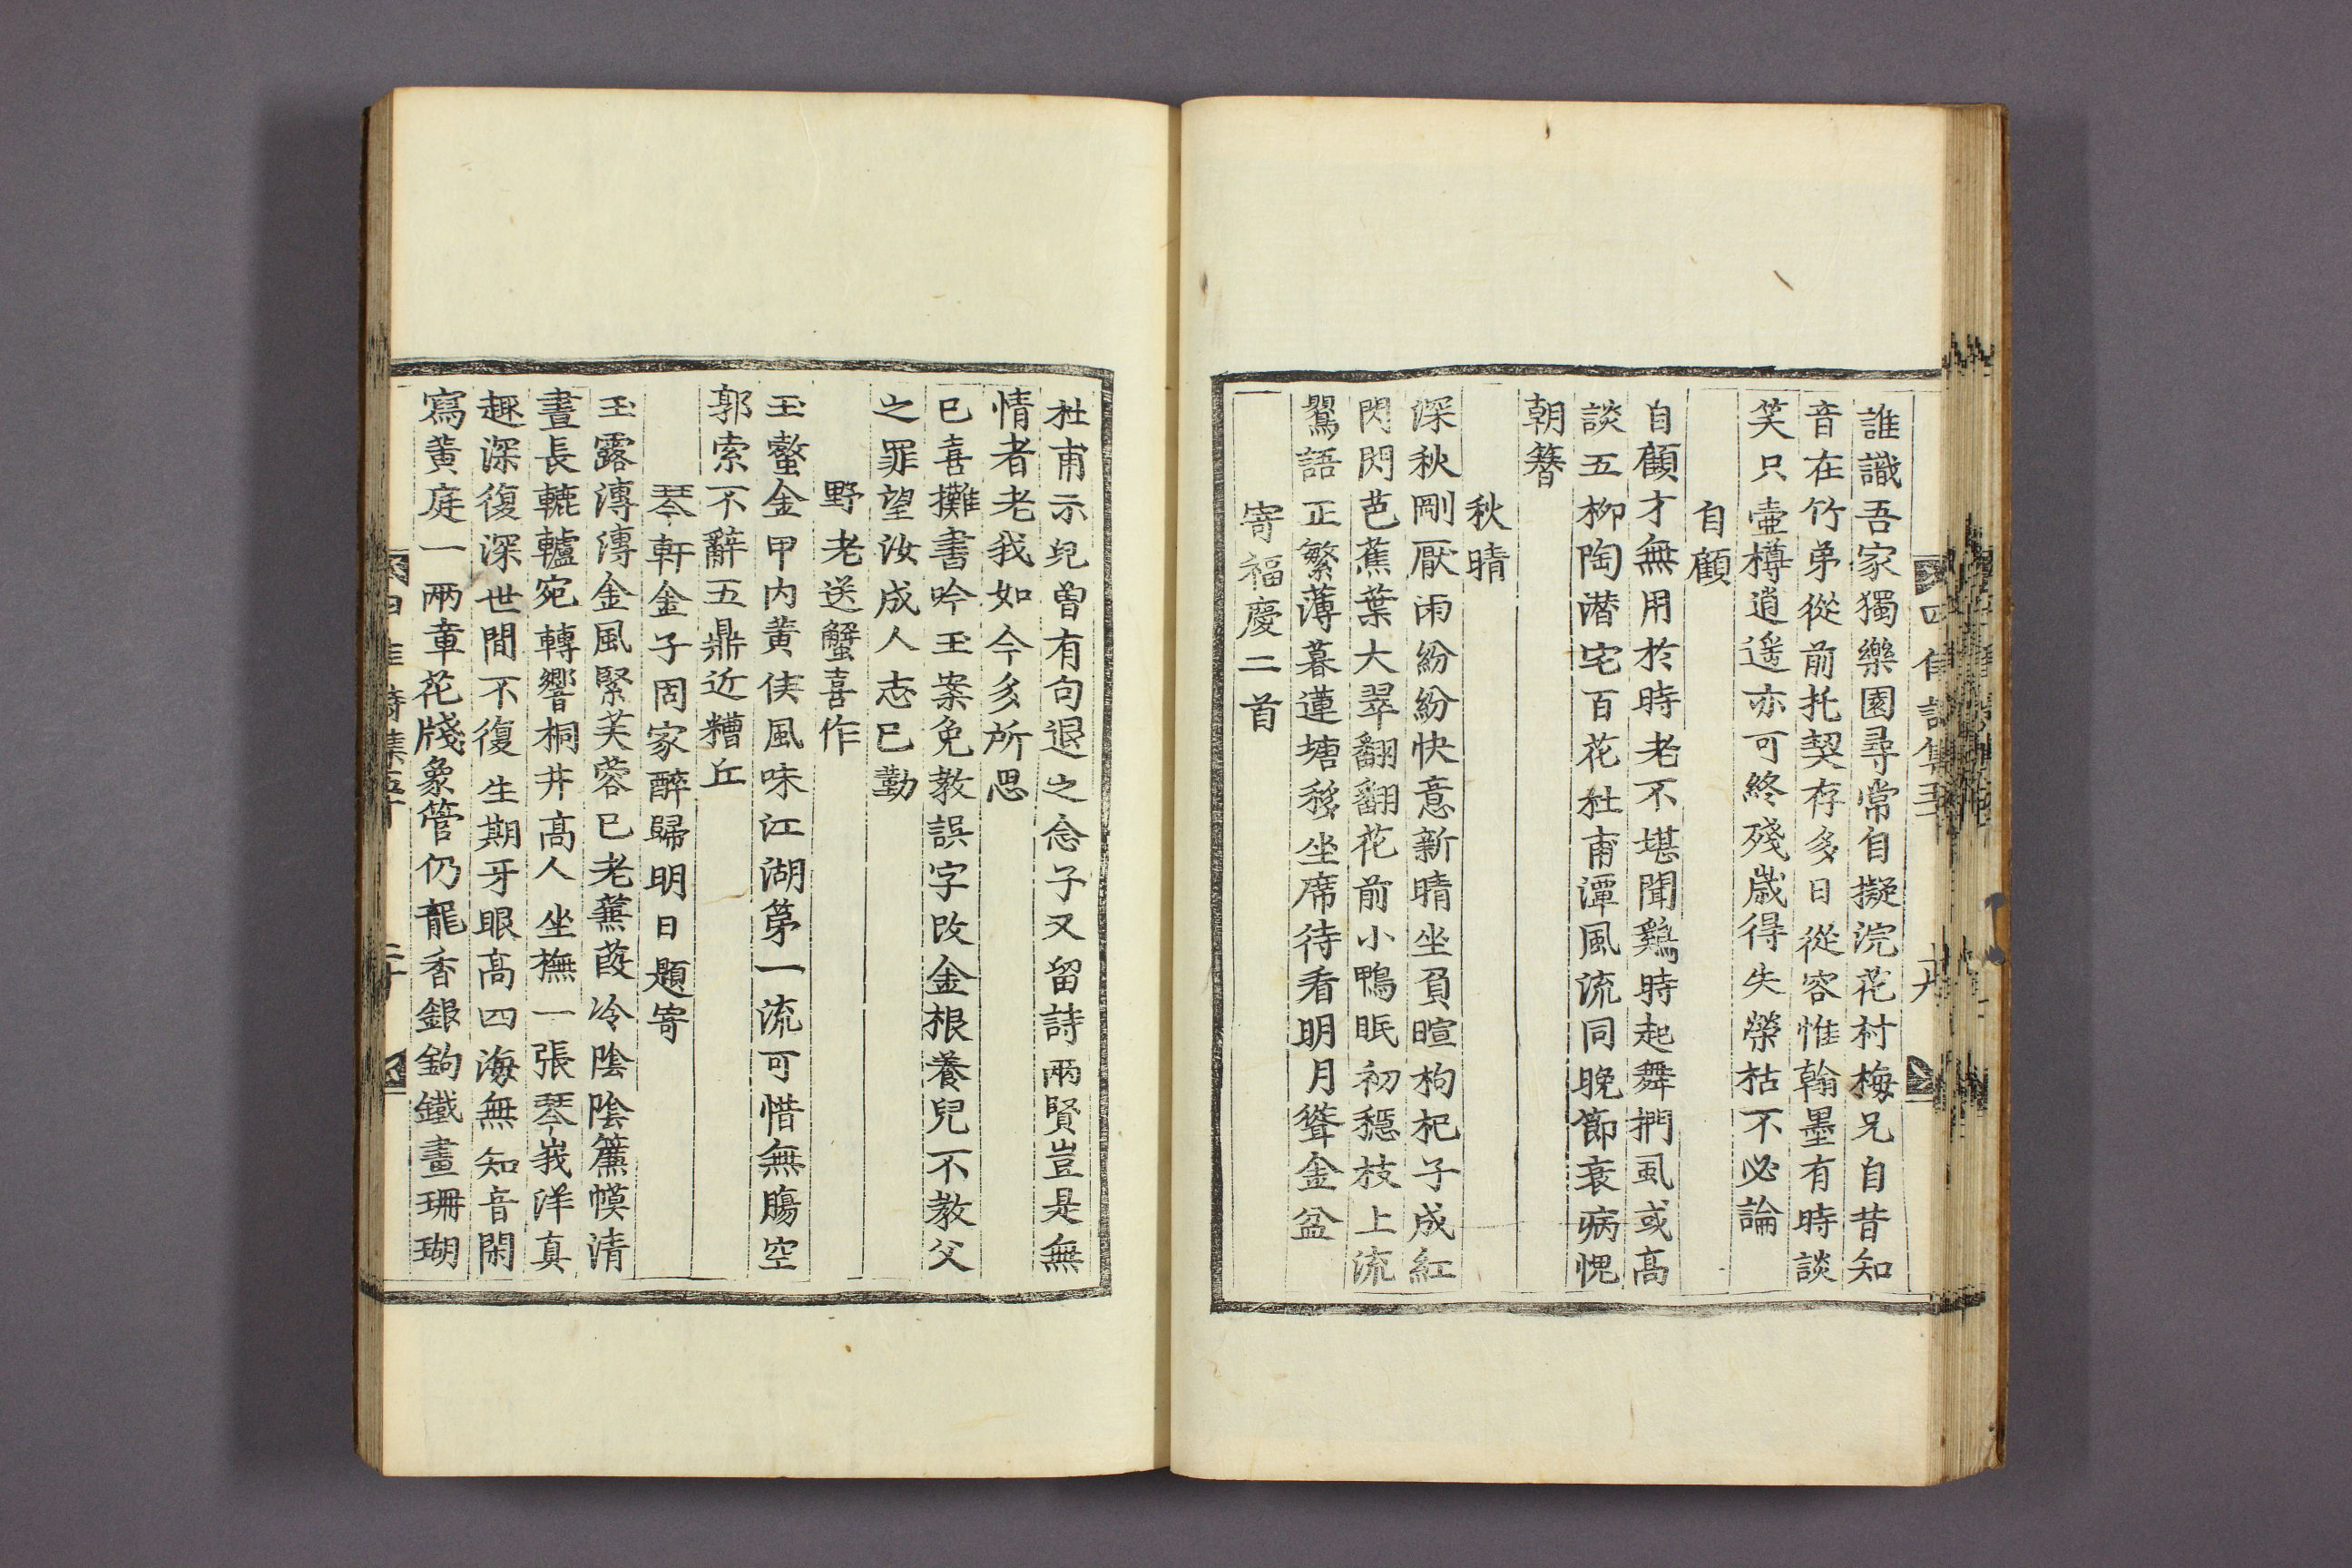 四佳詩集五
十九
誰識吾家獨樂園尋常自擬浣花村梅兄自昔知
音在竹弟從前托契存多日從容惟翰墨有時談
笑只壷樽逍遥亦可終殘歲得失榮枯不必論
自顧
自顧才無用於時老不堪聞鷄時起舞捫虱或高
談五柳陶潜宅百花杜甫潭風流同晚節衰病愧
朝簪
秋晴
深秋剛厭雨紛紛快意新晴坐負暄枸杞子成紅
閃閃芭蕉葉大翠翻翻花前小鴨眠初穩枝上流
鸎語正繁薄暮蓮塘移坐席待看明月聳金盆
寄福慶二首
杜甫示兒曽有句退之念子又留詩兩賢豈是無
情者老我如今多所思
已喜攤書吟玉案免教誤字改金根養兒不教父
之罪望汝成人志已勤
野老送蟹喜作
玉螯金甲内黄侠風味江湖第一流可惜無膓空
郭索不辭五鼎近糟丘
琴軒金子固家醉歸明日題寄
玉露漙漙金風緊芙蓉已老蒹葭冷陰陰簾幙清
晝長轆轤宛轉響桐井高人坐撫一張琴峩洋真
趣深復深世間不復生期牙眼高四海無知音閑
寫黄庭一兩章花牋象管仍龍香銀鉤鐵畫珊瑚